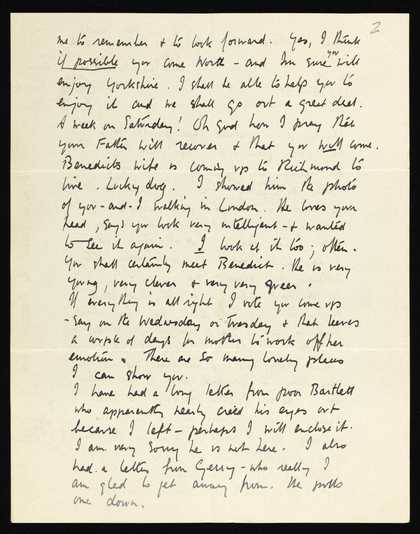 2
me to remember & to look forward. Yes, I think
if possible you come North - and I'm sure you will
enjoy Yorkshire. I shall be able to help you to
enjoy it and we shall go out a great deal.
A week on Saturday! Oh God how I pray that
your Father will recover & that you will come.
Benedicts wife is coming up to Richmond to
live. Lucky dog. I showed him the photo
of you-and-I walking in London. He loves your
head, says you look very intelligent - & wanted
to see it again. I look at it too; often.
You shall certainly meet Benedict. He is very
young, very clever & very very queer.
If everything is all right I vote you come up
- say on the Wednesday or Tuesday & that leaves
a couple of days for mother to work off her
emotion. There are so many lovely places
I can show you.
I have had a long letter from poor Bartlett
who apparently nearly cried his eyes out
because I left - perhaps I will enclose it.
I am very sorry he is not here. I also
had a letter from Gerry - who really I
am glad to get away from. He pulls
one down.